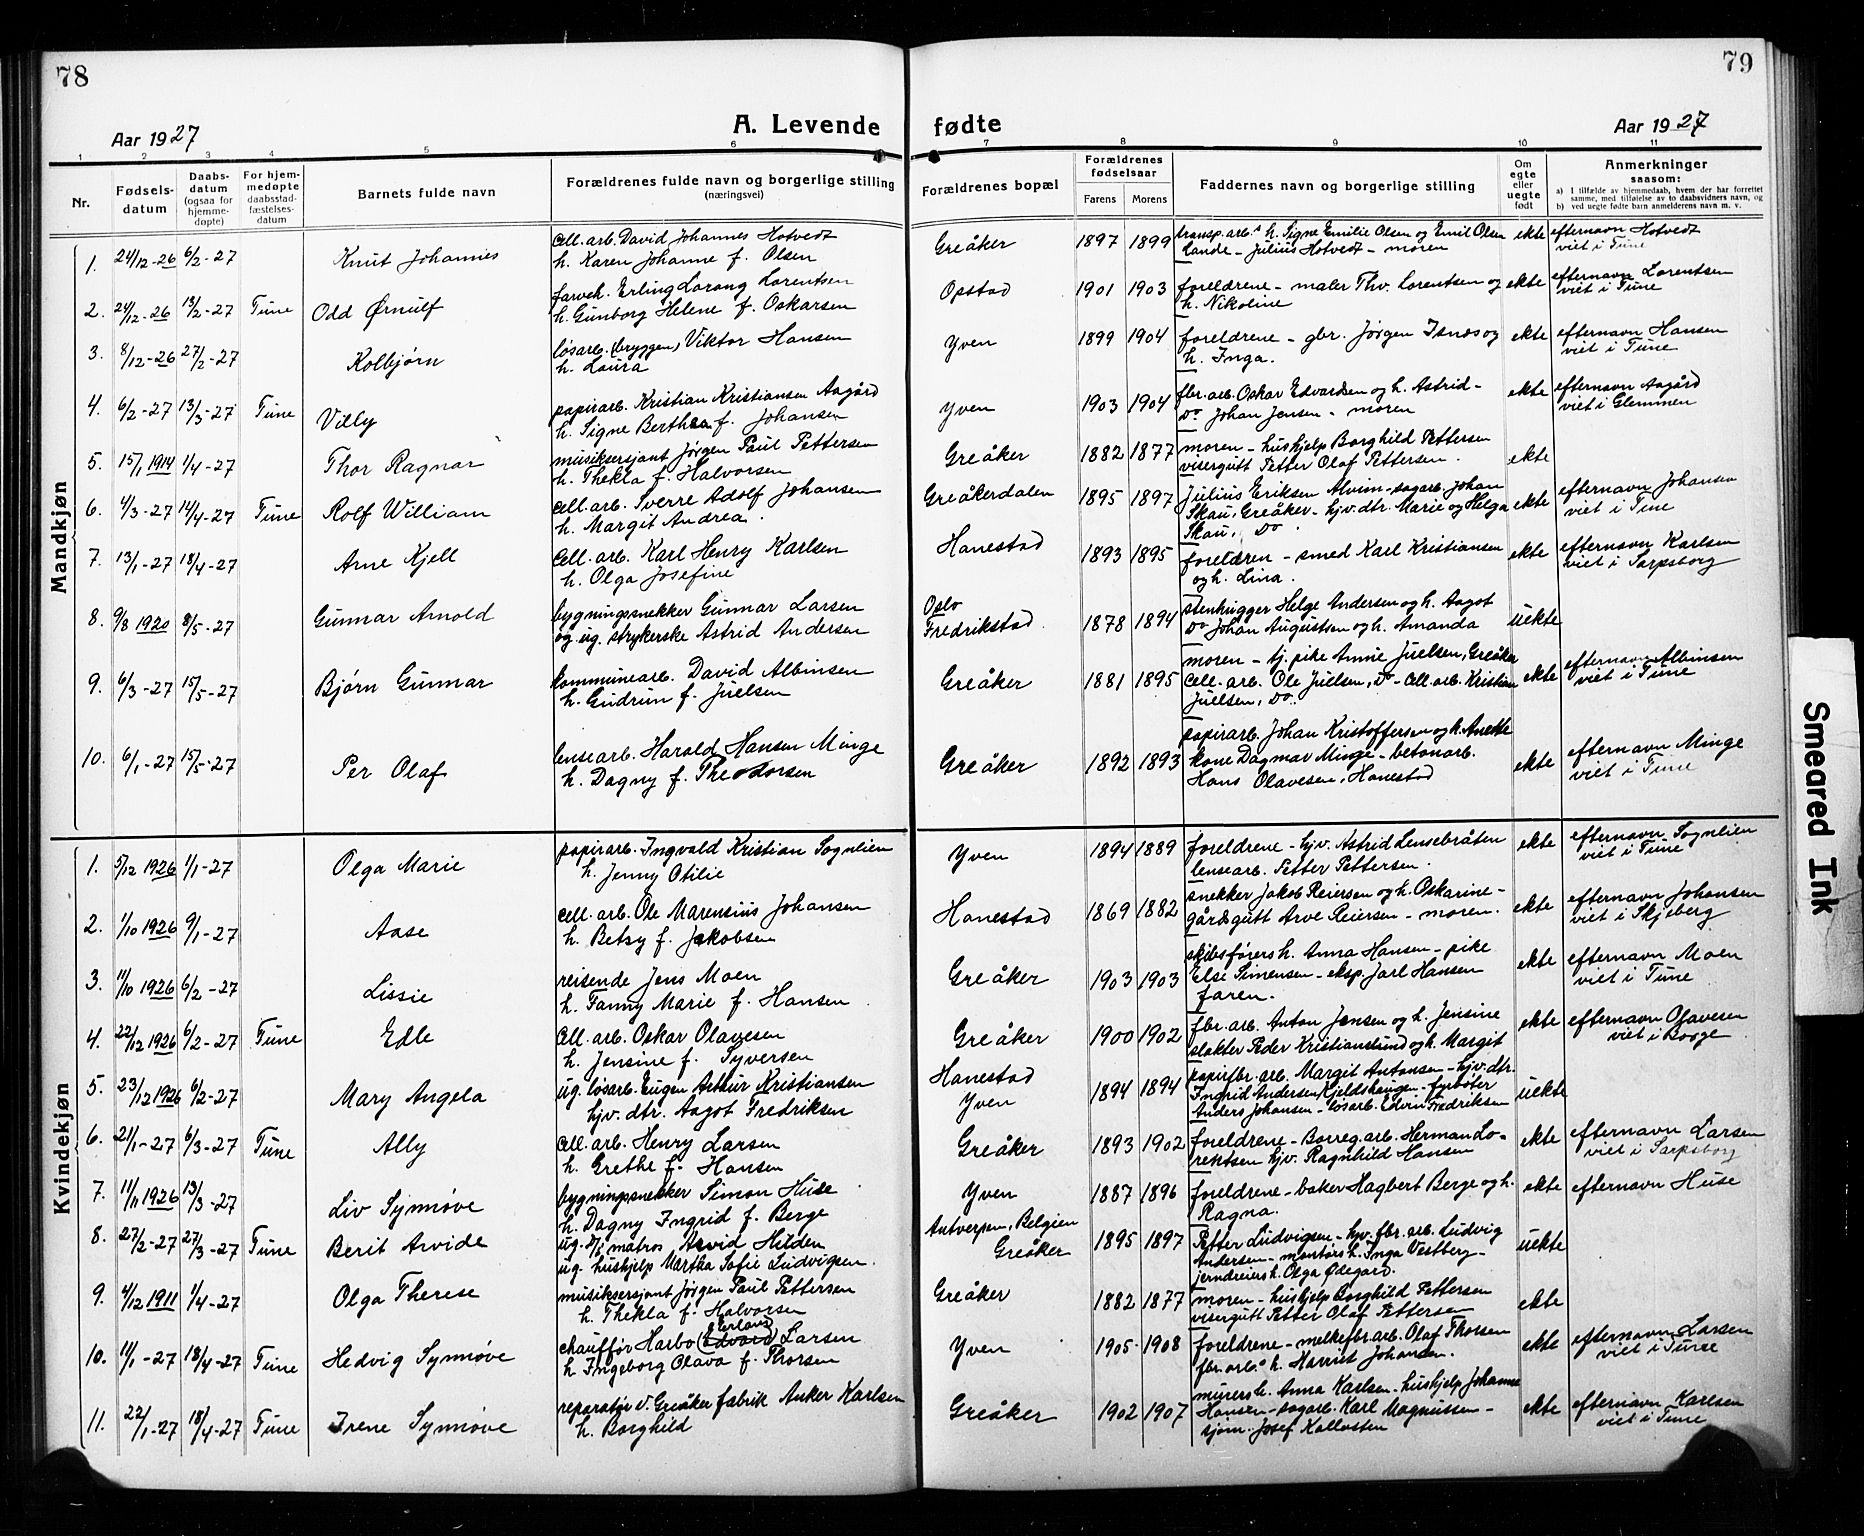 78
79
Aar 1927
A. Levende fødte
Aar 1927
1 2 3 4 5 6 7 8 9 10 11
Nr.
Fødsels-datum
Daabs-datum (ogsaa for hjemme-døpte)
For hjem-medøpte daabsstad-fæstelses-datum
Barnets fulde navn
Forældrenes fulde navn og borgerlige stilling (næringsvei)
Forældrenes bopæl
Forældrenes fødselsaar
Farens Morens
Faddernes navn og borgerlige stilling
Om egte eller uegte født
Anmerkninger saasom:
a) I tilfælde av hjemmedaab, hvem der har forrettet samme, med tilføielse av to daabsvidners navn, og
b) ved uegte fødte barn anmelderens navn m. v.
Mandkjøn
1. 24/12-26 6/2-27 Knut Johannes
cell. arb. David Johannes Hotvedt
h. Karen Johanne f. Olsen
Greåker 1897 1899
transp. arb.s h. Signe Emilie Olsen og Emil Olsen
Lande - Julius Hotvedt - moren
ekte
efternavn Hotvedt
viet i Tune
2. 24/12-26 13/2-27 Tune Odd Ørnulf
farveh. Erling Lorang Lorentsen
h. Gunborg Helene f. Oskarsen
Opstad 1901 1903
foreldrene - maler Thv. Lorentsen og
h. Nikoline
ekte
efternavn Lorentsen
viet i Tune
3. 8/12-26 27/2-27 Kolbjørn
løsarb. (bryggen) Viktor Hansen
h. Laura
Yven 1899 1904
foreldrene - gbr. Jørgen Isnes og
h. Inga.
ekte
efternavn Hansen
viet i Tune
4. 6/2-27 13/3-27 Tune Villy
papirarb. Kristian Kristiansen Aagård
h. Signe Berthea f. Johansen
Yven 1903 1904
fbr. arb. Oskar Edvardsen og h. Astrid -
Do Johan Jensen - moren
ekte
efternavn Aagård
viet i Glemmen
5. 15/1 1914 1/4-27 Thor Ragnar
musiksersjant Jørgen Paul Pettersen
h. Thekla f. Halvorsen
Greåker 1882 1877
moren - hushjelp Borghild Pettersen
visergutt Petter Olaf Pettersen.
ekte
6. 4/3-27 14/4-27 Tune Rolf William
cell. arb. Sverre Adolf Johansen
h. Margit Andrea.
Greåkerdalen 1895 1897
Julius Eriksen Alvim - sagarb. Johan
Skau, Greåker - hjv. dtr. Marie og Helga
Skau, Do
ekte
efternavn Johansen
viet i Tune
7. 13/1-27 18/4-27 Arne Kjell
cell. arb. Karl Henry Karlsen
h. Olga Josefine
Hanestad 1893 1895
foreldren - smed Karl Kristiansen
og h. Lina.
ekte
efternavn Karlsen
viet i Sarpsborg
8. 9/8 1920 8/5-27 Gunnar Arnold
bygningssnekker Gunnar Larsen
og ug. strykerske Astrid Andersen
Oslo
Fredrikstad 1878 1894
stenhugger Helge Andersen og h. Aagot
Do Johan Augustsen og h. Amanda
uekte
9. 6/3-27 15/5-27 Bjørn Gunnar
kommunearb. David Albinsen
h. Gudrun f. Juelsen
Greåker 1881 1895
moren - tj. pike Annie Juelsen, Greåker
cell. arb. Ole Juelsen, Do - cell. arb. Kristian
Juelsen, Do.
ekte
efternavn Albinsen
viet i Tune
10. 6/1-27 15/5-27 Per Olaf
lensearb. Harald Hansen Minge
h. Dagny f. Theodorsen
Greåker 1892 1893
papirarb. Johan Kristoffersen og h. Anette
kone Dagmar Minge - betonarb.
Hans Olavesen, Hanestad
ekte
efternavn Minge
viet i Tune
Kvindekjøn
1. 5/12 1926 1/1-27 Olga Marie
papirarb. Ingvald Kristian Sognlien
h. Jenny Otilie
Yven 1894 1889
foreldrene - hjv. Astrid Lensebråten
lensearb. Petter Pettersen.
ekte
efternavn Sognlien
viet i Tune
2. 1/10 1926 9/1-27 Aase
cell. arb. Ole Marensius Johansen
h. Betsy f. Jakobsen
Hanestad 1869 1882
snekker Jakob Reiersen og h. Oskarine -
gårdsgutt Arve Reiersen - moren.
ekte
efternavn Johansen
viet i Skjeberg
3. 11/10 1926 6/2-27 Lissie
reisende Jens Moen
h. Fanny Marie f. Hansen
Greåker 1903 1903
skibsførers h. Anna Hansen - pike
Else Simensen - eksp. Jarl Hansen
faren.
ekte
efternavn Moen
viet i Tune
4. 22/12 1926 6/2-27 Tune Edle
cell. arb. Oskar Olavesen
h. Jensine f. Syversen
Greåker 1900 1902
fbr. arb. Anton Jensen og h. Jensine
slakter Peder Kristianslund og h. Margit
ekte
efternavn Olavesen
viet i Borge
5. 23/12 1926 6/2-27 Mary Angela
ug. løsarb. Eugen Arthur Kristiansen
hjv. dtr. Aagot Fredriksen
Hanestad
Yven 1894 1894
papirfbr. arb. Margit Antonsen - hjv. dtr.
Ingrid Andersen, Kjeldshaugen - fyrbøter
Anders Johansen - løsarb. Edvin Fredriksen
uekte
6. 21/1-27 6/3-27 Tune Ally
cell. arb. Henry Larsen
h. Grethe f. Hansen
Greåker 1893 1902
foreldrene - Borreg. arb. Herman Lo-
rentsen hjv. Ragnhild Hansen
ekte
efternavn Larsen
viet i Sarpsborg
7. 11/11 1926 13/3-27 Liv Synnøve
bygningssnekker Simon Huse
h. Dagny Ingrid f. Berge
Yven 1887 1896
foreldrene - baker Hagbert Berge og h.
Ragna.
ekte
efternavn Huse
8. 27/2-27 27/3-27 Tune Berit Arvide
ug. matros Arvid Hilden
ug. hushjelp Martha Sofie Ludvigsen.
Antverpen, Belgien
Greåker 1895 1897
Petter Ludvigsen - hjv. fbr. arb. Ludvig
Andersen - montørs h. Inga Vestberg -
jerndreiers h. Olga Ødegård.
uekte
9. 4/12 1911 1/4-27 Olga Therese
musiksersjant Jørgen Paul Pettersen
h. Thekla f. Halvorsen
Greåker 1882 1877
moren - hushjelp Borghild Pettersen
visergutt Petter Olaf Pettersen
ekte
10. 11/1-27 18/4-27 Tune Hedvig Synnøve
Erland
chauffør Harbo (Edvard) Larsen
h. Ingeborg Olava f. Thorsen
Yven 1905 1908
foreldrene - melkefbr. arb. Olaf Thorsen
fbr. arb.s h. Harriet Johansen.
ekte
efternavn Larsen
viet i Tune
11. 22/1-27 18/4-27 Tune Irene Synnøve
reparatør v. Greåker fabrik Anker Karlsen
h. Borghild
Greåker 1902 1907
murers h. Anna Karlsen - hushjelp Johanne
Hansen - sagarb. Karl Magnussen -
sjøm. Josef Kallosten
ekte
efternavn Karlsen
viet i Tune
Smeared Ink